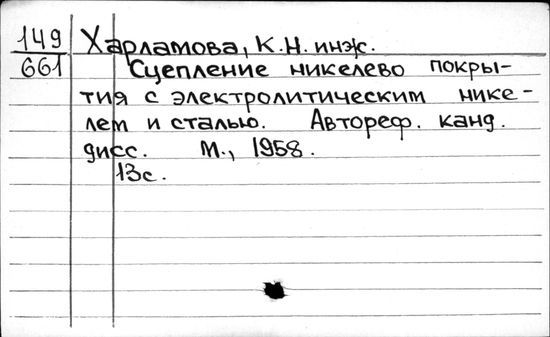 149 Харламова, К.Н. инж.
661 Сцепление никелево покры-
тия с электролитическим нике-
лем и сталью. Автореф. канд.
дисс. М., 1958.
13с.